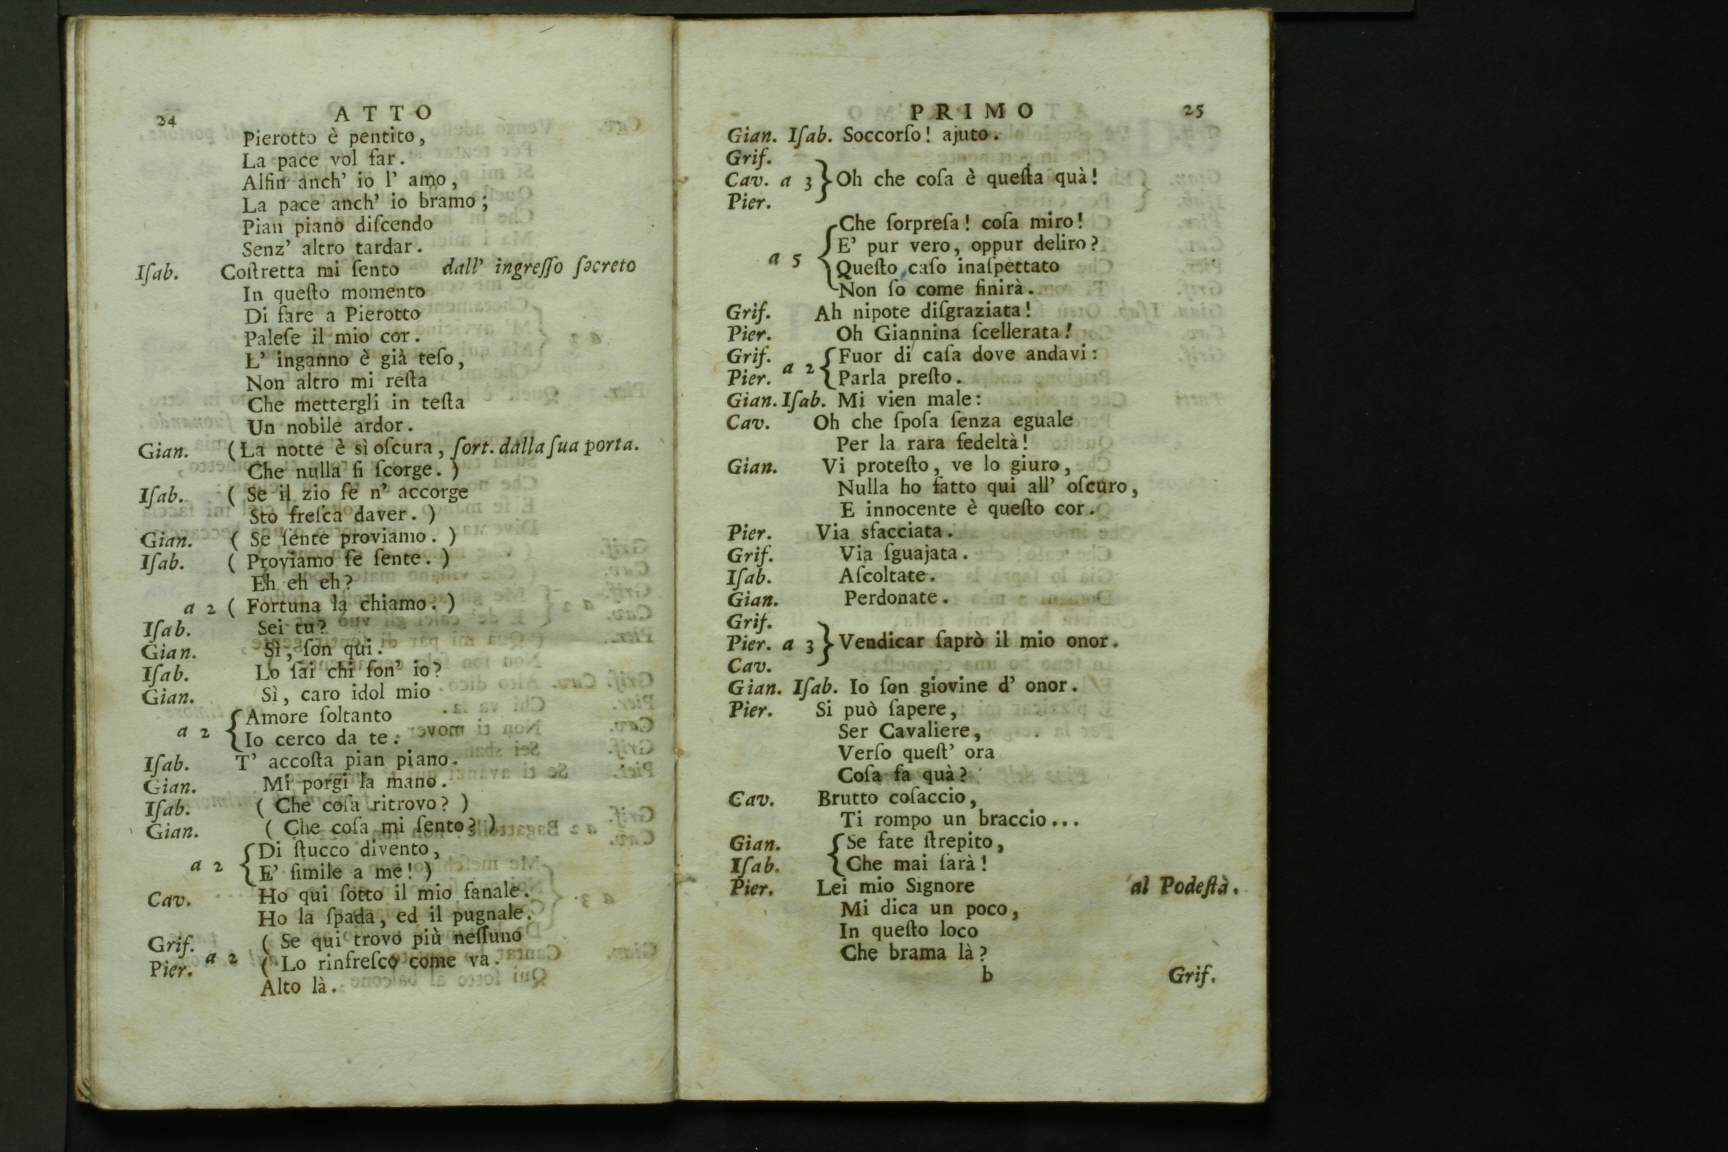 24 ATTO
Pierotto è pentito,
La pace vol far.
Alfin anch' io l' amo,
La pace anch' io bramo;
Pian piano diſcendo
Senz' altro tardar.
Iſab. Coſtretta mi ſento dall' ingreſſo ſecreto
In queſto momento
Di fare a Pierotto
Paleſe il mio cor.
L' inganno è già teſo,
Non altro mi reſta
Che mettergli in teſta
Un nobile ardor.
Gian. (La notte è sì oſcura, ſort. dalla ſua porta.
Che nulla ſi ſcorge. )
Iſab. ( Se il zio ſe n' accorge
Sto freſca daver. )
Gian. ( Se ſente proviamo. )
Iſab. ( Proviamo ſe ſente. )
Eh eh eh?
a 2 ( Fortuna la chiamo. )
Iſab. Sei tu?
Gian. Sì, ſon qui.
Iſab. Lo ſai chi ſon' io?
Gian. Sì, caro idol mio
a 2 { Amore ſoltanto
Io cerco da te.
Iſab. T' accoſta pian piano.
Gian. Mi porgi la mano.
Iſab. ( Che coſa ritrovo? )
Gian. ( Che coſa mi ſento? )
a 2 { Di ſtucco divento,
E' ſimile a me! )
Cav. Ho qui ſotto il mio fanale.
Ho la ſpada, ed il pugnale.
Grif. ( Se qui trovo più neſſuno
Pier. a 2 ( Lo rinfreſco come va.
Alto là.
PRIMO 25
Gian. Iſab. Soccorſo! ajuto.
Grif.
Cav. a 3 } Oh che coſa è queſta quà!
Pier.
Che ſorpreſa! coſa miro!
a 5 { E' pur vero, oppur deliro?
Queſto caſo inaſpettato
Non ſo come finirà.
Grif. Ah nipote diſgraziata!
Pier. Oh Giannina ſcellerata!
Grif. a 2 { Fuor di caſa dove andavi:
Pier. Parla preſto.
Gian. Iſab. Mi vien male:
Cav. Oh che ſpoſa ſenza eguale
Per la rara fedeltà!
Gian. Vi proteſto, ve lo giuro,
Nulla ho fatto qui all' oſcuro,
E innocente è queſto cor.
Pier. Via sfacciata.
Grif. Via ſguajata.
Iſab. Aſcoltate.
Gian. Perdonate.
Grif.
Pier. a 3 } Vendicar ſaprò il mio onor.
Cav.
Gian. Iſab. Io ſon giovine d' onor.
Pier. Si può ſapere,
Ser Cavaliere,
Verſo queſt' ora
Coſa fa quà?
Cav. Brutto coſaccio,
Ti rompo un braccio...
Gian. { Se fate ſtrepito,
Iſab. Che mai ſarà!
Pier. Lei mio Signore al Podeſtà.
Mi dica un poco,
In queſto loco
Che brama là?
b Grif.